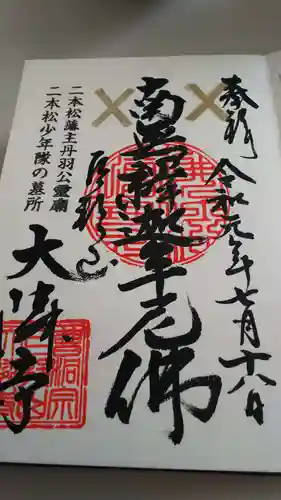 奉拝 令和元年七月十八日
南無釋迦牟尼佛
二本松藩主丹羽公霊廟
二本松少年隊の墓所
大隣寺